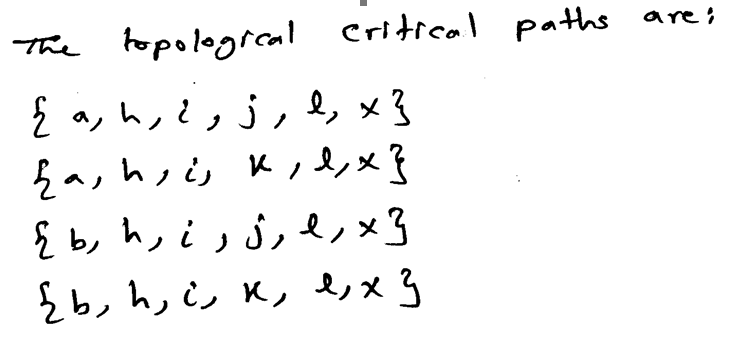 The topological critical paths are:
{a, h, i, j, l, x}
{a, h, i, k, l, x}
{b, h, i, j, l, x}
{b, h, i, k, l, x}